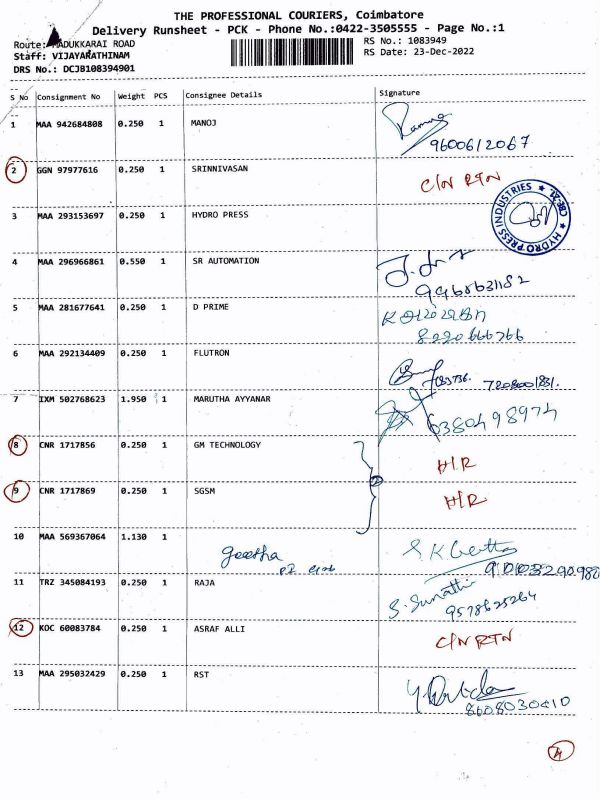 THE PROFESSIONAL COURIERS, Coimbatore
Delivery Runsheet - PCK - Phone No.:0422-3505555 - Page No.:1
Route: MADUKKARAI ROAD RS No.: 1083949
Staff: VIJAYARATHINAM RS Date: 23-Dec-2022
DRS No.: DCJB108394901
S No Consignment No Weight PCS Consignee Details Signature
1 MAA 942684808 0.250 1 MANOJ
9600612067
2 GGN 97977616 0.250 1 SRINNIVASAN C/N RTN
3 MAA 293153697 0.250 1 HYDRO PRESS
HYDRO PRESS INDUSTRIES ★ CBE-21. ★
4 MAA 296966861 0.550 1 SR AUTOMATION
5 MAA 281677641 0.250 1 D PRIME
8220666766
6 MAA 292134409 0.250 1 FLUTRON
7 IXM 502768623 1.950 1 MARUTHA AYYANAR
6380498974
8 CNR 1717856 0.250 1 GM TECHNOLOGY H/R
9 CNR 1717869 0.250 1 SGSM H/R
10 MAA 569367064 1.130 1
geetha
11 TRZ 345084193 0.250 1 RAJA
9578625264
12 KOC 60083784 0.250 1 ASRAF ALLI C/N RTN
13 MAA 295032429 0.250 1 RST
4